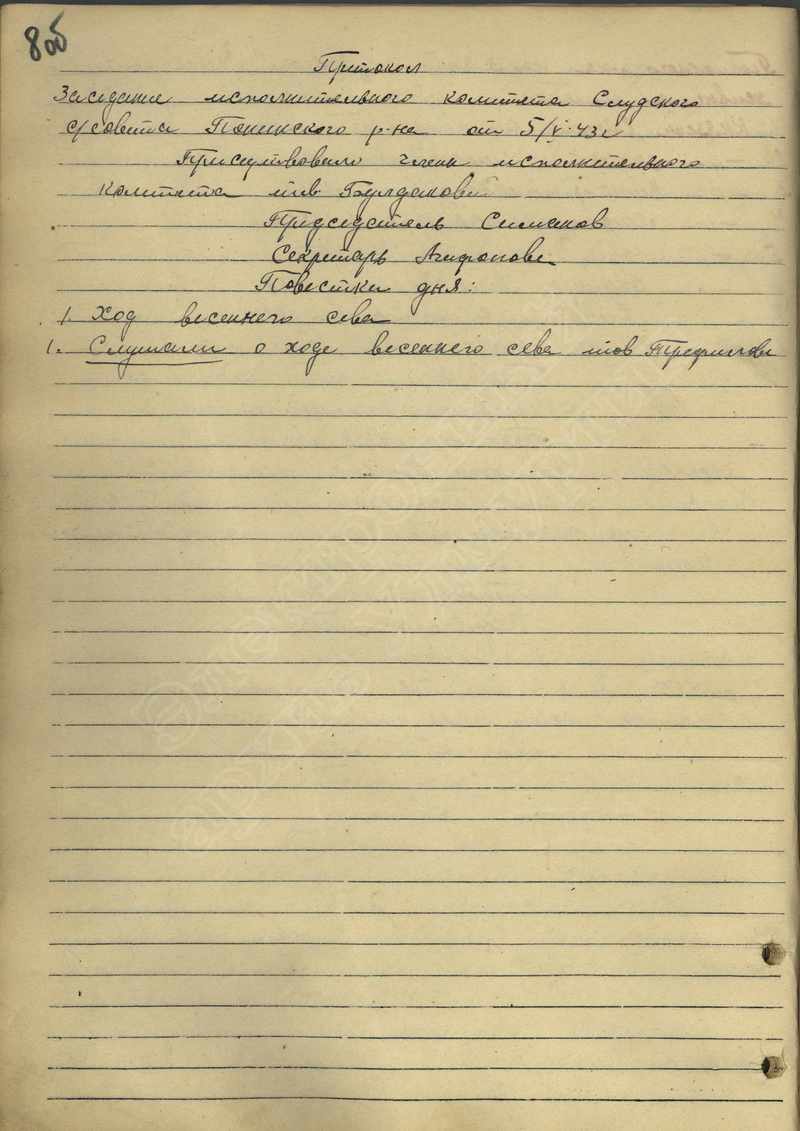 8об
Протокол
Заседание исполнительного комитета Слудского
с/совета Понинского р-на от 5/V-43 г
Присутствовали члены исполнительного
комитета тов Булдакова
Председатель Симанов
Секретарь Агафонова
Повестка дня:
1. Ход весеннего сева
1. Слушали о ходе весеннего сева тов Трефилова